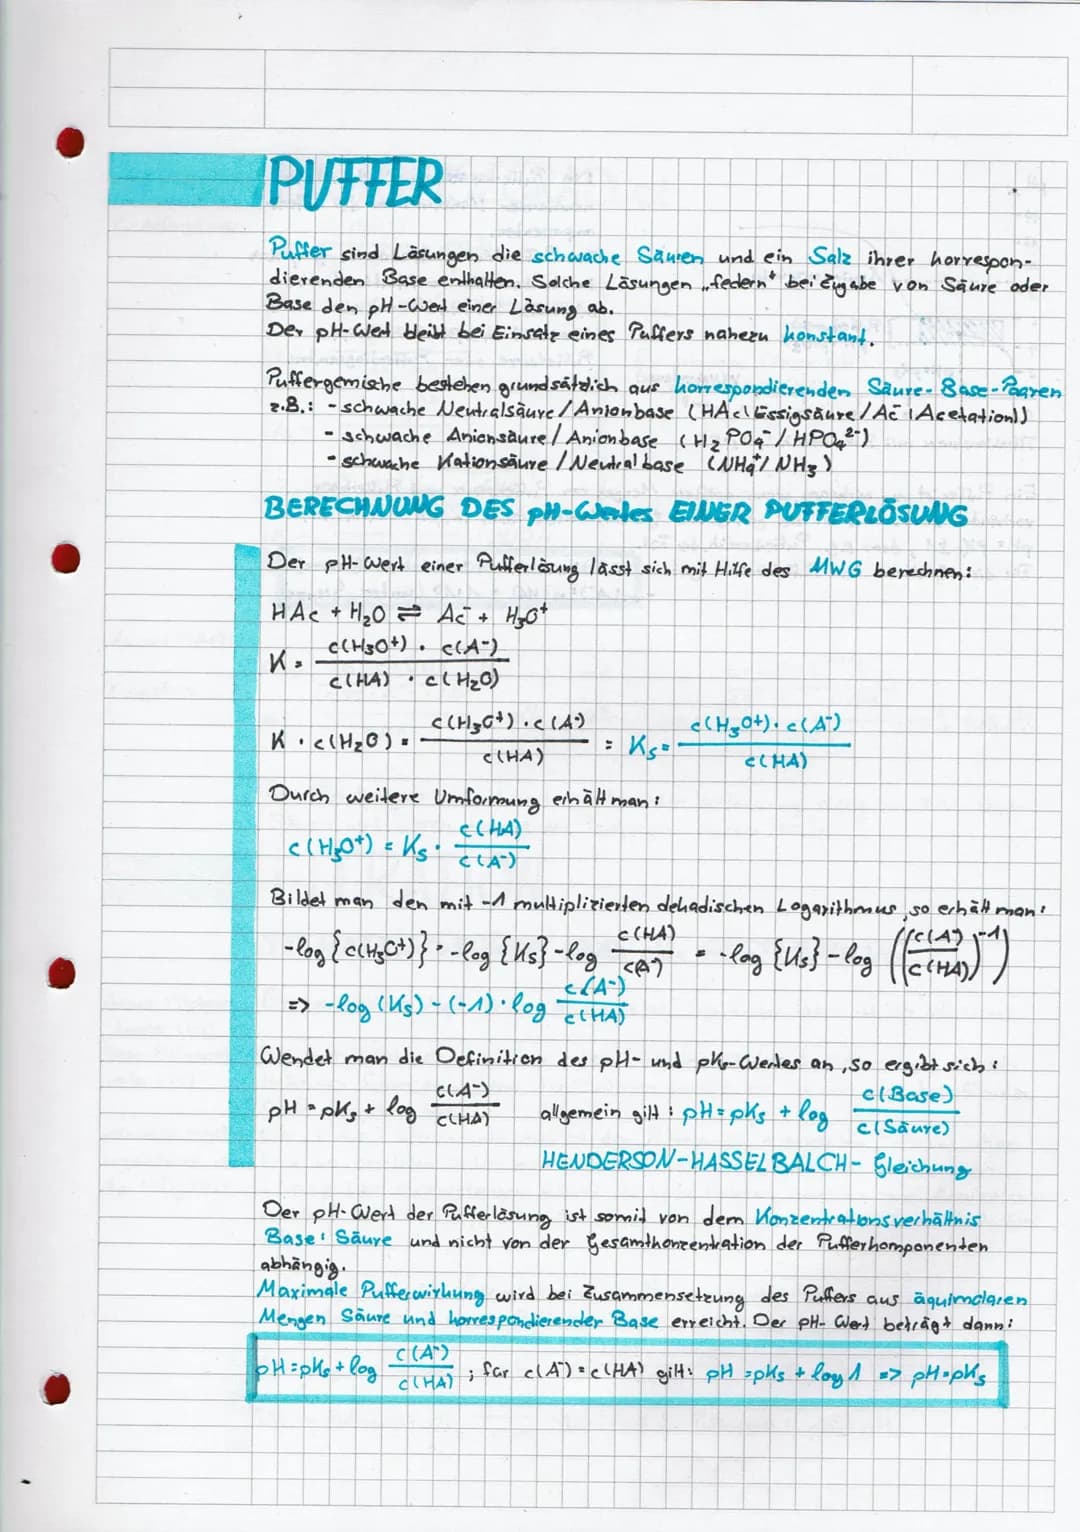 PUFFER
Puffer sind Lösungen die schwache Säuren und ein Salz ihrer korrespon-
dierenden Base enthalten. Solche Lösungen „federn“ bei Zugabe von Säure oder
Base den pH-Wert einer Lösung ab.
Der pH-Wert bleibt bei Einsatz eines Puffers nahezu konstant.
Puffergemische bestehen grundsätzlich aus korrespondierenden Säure-Base-Paaren
z.B.: - schwache Neutralsäure / Anionbase (HAc (Essigsäure / Ac⁻ (Acetation))
- schwache Anionsäure / Anionbase (H₂PO₄⁻ / HPO₄²⁻)
- schwache Kationsäure / Neutralbase (NH₄⁺ / NH₃)
BERECHNUNG DES pH-Wertes EINER PUFFERLÖSUNG
Der pH-Wert einer Pufferlösung lässt sich mit Hilfe des MWG berechnen:
HAc + H₂O ⇌ Ac⁻ + H₃O⁺
K = c(H₃O⁺) · c(A⁻) / c(HA) · c(H₂O)
K · c(H₂O) = c(H₃O⁺) · c(A⁻) / c(HA) = Ks = c(H₃O⁺) · c(A⁻) / c(HA)
Durch weitere Umformung erhält man:
c(H₃O⁺) = Ks · c(HA) / c(A⁻)
Bildet man den mit -1 multiplizierten dekadischen Logarithmus, so erhält man:
-log {c(H₃O⁺)} = -log {Ks} - log c(HA) / c(A⁻) = -log {Ks} - log ((c(A⁻) / c(HA))⁻¹)
=> -log (Ks) - (-1) · log c(A⁻) / c(HA)
Wendet man die Definition des pH- und pKs-Wertes an, so ergibt sich:
pH = pKs + log c(A⁻) / c(HA) allgemein gilt: pH = pKs + log c(Base) / c(Säure)
HENDERSON-HASSELBALCH-Gleichung
Der pH-Wert der Pufferlösung ist somit von dem Konzentrationsverhältnis
Base : Säure und nicht von der Gesamtkonzentration der Pufferkomponenten
abhängig.
Maximale Pufferwirkung wird bei Zusammensetzung des Puffers aus äquimolaren
Mengen Säure und korrespondierender Base erreicht. Der pH-Wert beträgt dann:
pH = pKs + log c(A⁻) / c(HA) ; für c(A⁻) = c(HA) gilt: pH = pKs + log 1 => pH = pKs